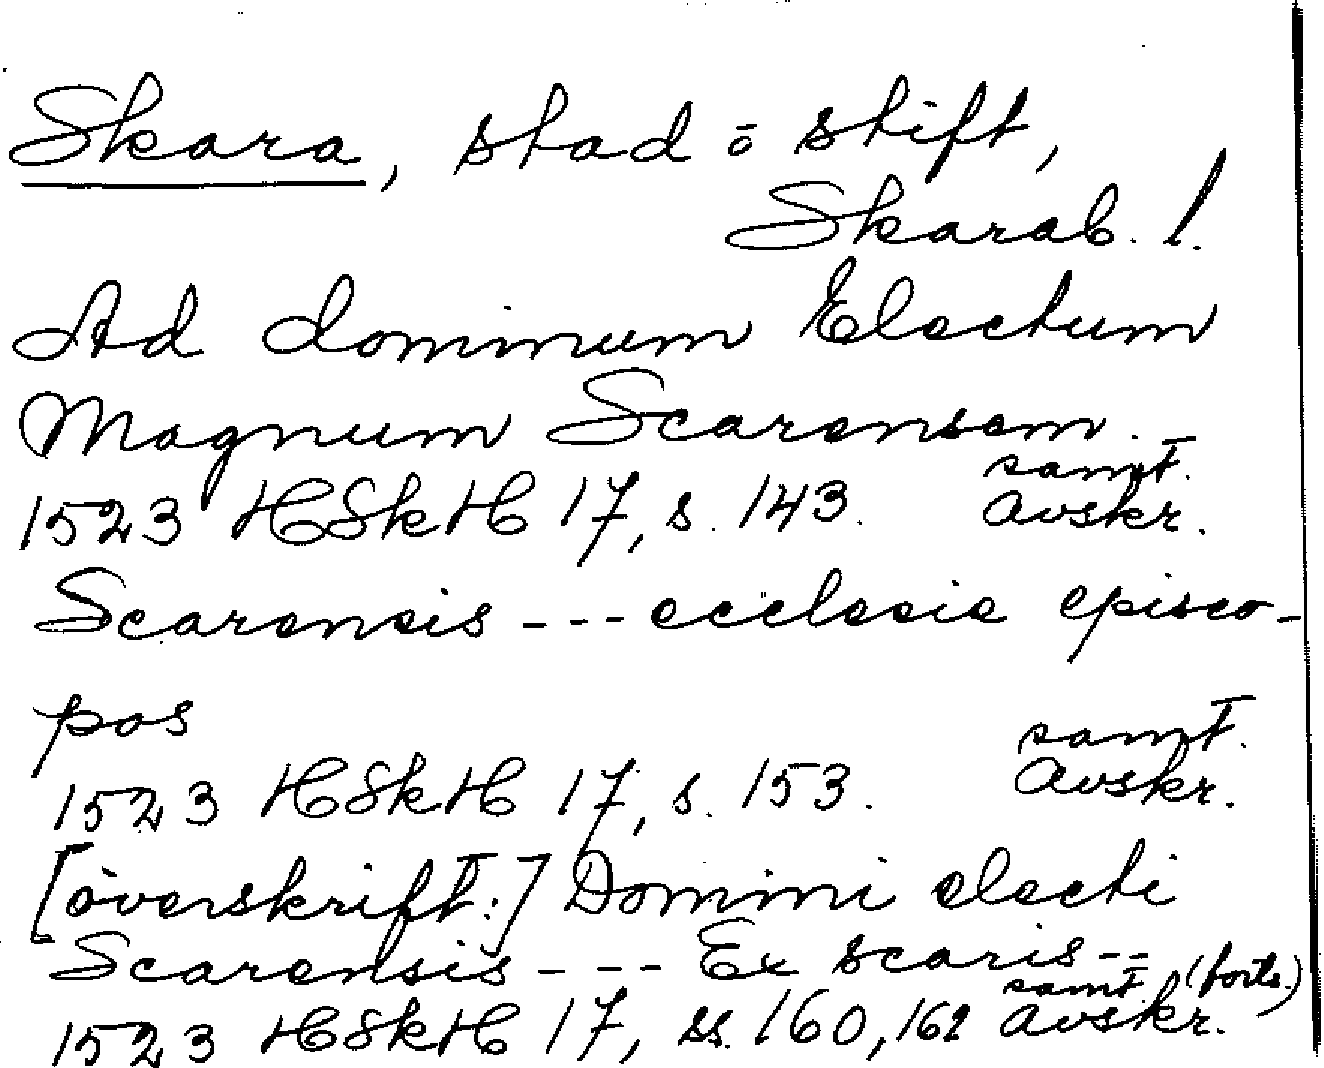 Skara, stad o stift,
Skarab. l.
Ad dominum Electum
Magnum Scarensem.
samt.
1523 HSkH 17, s. 143. avskr.
Scarensis --- ecclesie episco-
pos
samt.
1523 HSkH 17, s. 153. avskr.
[överskrift:] Domini electi
Scarensis --- Ex scaris --
samt. (forts.)
1523 HSkH 17, ss. 160, 162 avskr.